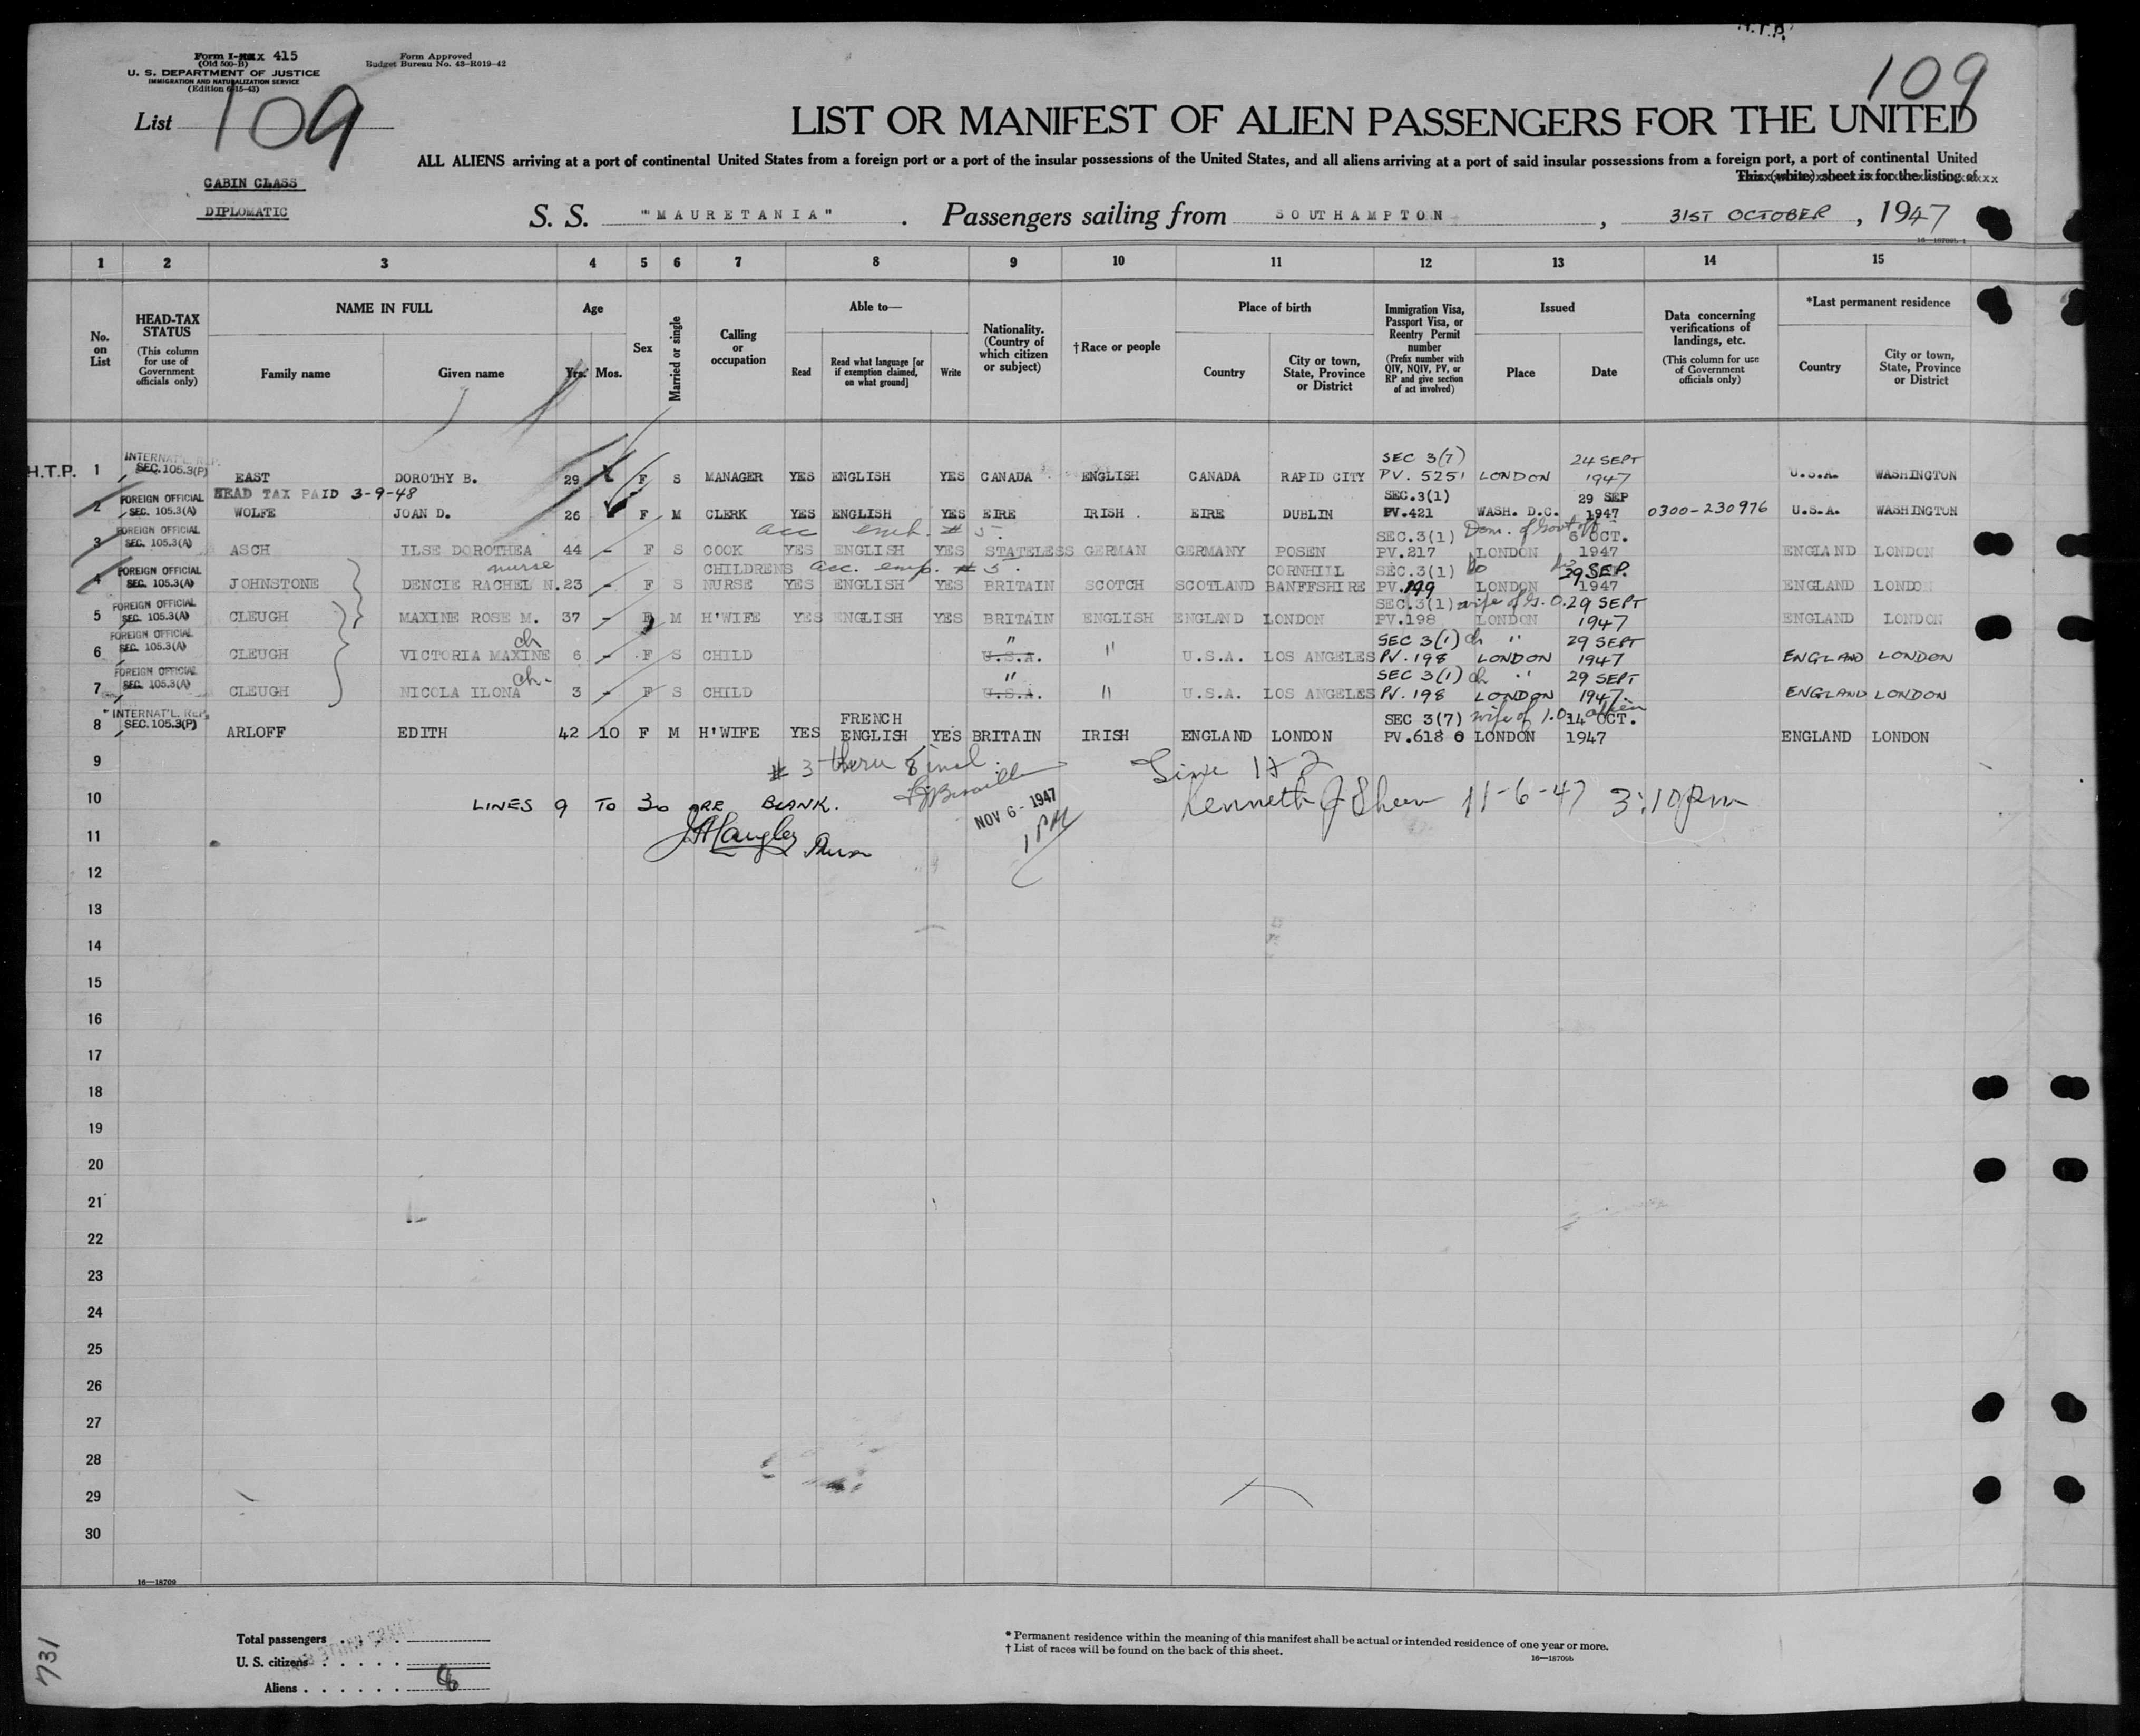 H.T.P.
Form I-xxx 415
(Old 500-B)
U. S. DEPARTMENT OF JUSTICE
IMMIGRATION AND NATURALIZATION SERVICE
(Edition 6-15-43)
Form Approved
Budget Bureau No. 43-R019-42
List 109
109
LIST OR MANIFEST OF ALIEN PASSENGERS FOR THE UNITED
ALL ALIENS arriving at a port of continental United States from a foreign port or a port of the insular possessions of the United States, and all aliens arriving at a port of said insular possessions from a foreign port, a port of continental United
This (white) sheet is for the listing of
CABIN CLASS
DIPLOMATIC
S. S. "MAURETANIA". Passengers sailing from SOUTHAMPTON, 31ST OCTOBER, 1947
1 2 3 4 5 6 7 8 9 10 11 12 13 14 15
No. on List
HEAD-TAX STATUS (This column for use of Government officials only)
NAME IN FULL
Family name Given name
Age
Yrs. Mos.
Sex
Married or single
Calling or occupation
Able to—
Read Read what language [or if exemption claimed, on what ground] Write
Nationality. (Country of which citizen or subject)
†Race or people
Place of birth
Country City or town, State, Province or District
Immigration Visa, Passport Visa, or Reentry Permit number (Prefix number with QIV, NQIV, PV, or RP and give section of act involved)
Issued
Place Date
Data concerning verifications of landings, etc. (This column for use of Government officials only)
*Last permanent residence
Country City or town, State, Province or District
INTERNAT'L REP. SEC 3(7) 24 SEPT
H.T.P. 1 SEC. 105.3(P) EAST DOROTHY B. 29 F S MANAGER YES ENGLISH YES CANADA ENGLISH CANADA RAPID CITY PV. 5251 LONDON 1947 U.S.A. WASHINGTON
HEAD TAX PAID 3-9-48
FOREIGN OFFICIAL SEC.3(1) 29 SEP
2 SEC. 105.3(A) WOLFE JOAN D. 26 F M CLERK YES ENGLISH YES EIRE IRISH EIRE DUBLIN PV.421 WASH. D.C. 1947 0300-230976 U.S.A. WASHINGTON
FOREIGN OFFICIAL acc emp. # 5. SEC.3(1) Dom. of Govt off 6 OCT.
3 SEC. 105.3(A) ASCH ILSE DOROTHEA 44 - F S COOK YES ENGLISH YES STATELESS GERMAN GERMANY POSEN PV.217 LONDON 1947 ENGLAND LONDON
FOREIGN OFFICIAL nurse CHILDRENS acc. emp. # 5. CORNHILL SEC.3(1) Do 29 SEP.
4 SEC. 105.3(A) JOHNSTONE DENCIE RACHEL N. 23 - F S NURSE YES ENGLISH YES BRITAIN SCOTCH SCOTLAND BANFFSHIRE PV.199 LONDON 1947 ENGLAND LONDON
FOREIGN OFFICIAL SEC.3(1) wife of G.O. 29 SEPT
5 SEC. 105.3(A) CLEUGH MAXINE ROSE M. 37 - F M H'WIFE YES ENGLISH YES BRITAIN ENGLISH ENGLAND LONDON PV.198 LONDON 1947 ENGLAND LONDON
FOREIGN OFFICIAL ch " SEC 3(1) ch " 29 SEPT
6 SEC. 105.3(A) CLEUGH VICTORIA MAXINE 6 - F S CHILD U.S.A. " U.S.A. LOS ANGELES PV. 198 LONDON 1947 ENGLAND LONDON
FOREIGN OFFICIAL ch. " SEC 3(1) ch " 29 SEPT
7 SEC. 105.3(A) CLEUGH NICOLA ILONA 3 - F S CHILD U.S.A. " U.S.A. LOS ANGELES PV. 198 LONDON 1947 ENGLAND LONDON
INTERNAT'L. REP. FRENCH SEC 3(7) wife of I.O. alien 14 OCT.
8 SEC. 105.3(P) ARLOFF EDITH 42 10 F M H'WIFE YES ENGLISH YES BRITAIN IRISH ENGLAND LONDON PV.618 0 LONDON 1947 ENGLAND LONDON
9 # 3 theru 8 incl. Line 1 & 2
10 LINES 9 TO 30 ARE BLANK. NOV 6 - 1947 Kenneth J Shea 11-6-47 3:10 pm
11 1 PM
12
13
14
15
16
17
18
19
20
21
22
23
24
25
26
27
28
29
30
16—18709
731
Total passengers
U. S. citizens
Aliens
* Permanent residence within the meaning of this manifest shall be actual or intended residence of one year or more.
† List of races will be found on the back of this sheet.
16—18709b